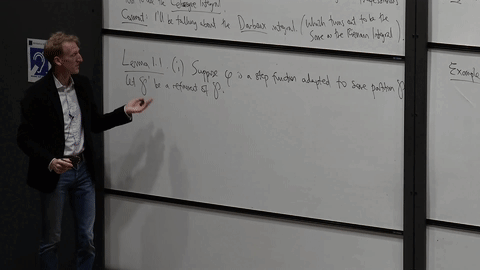 to as the Lebesgue Integral.
Caveat: I'll be talking about the Darboux integral. (Which turns out to be the
same as the Riemann Integral.)
Lemma 1.1 (i) Suppose φ is a step function adapted to some partition P.
Let P' be a refinement of P.
Example